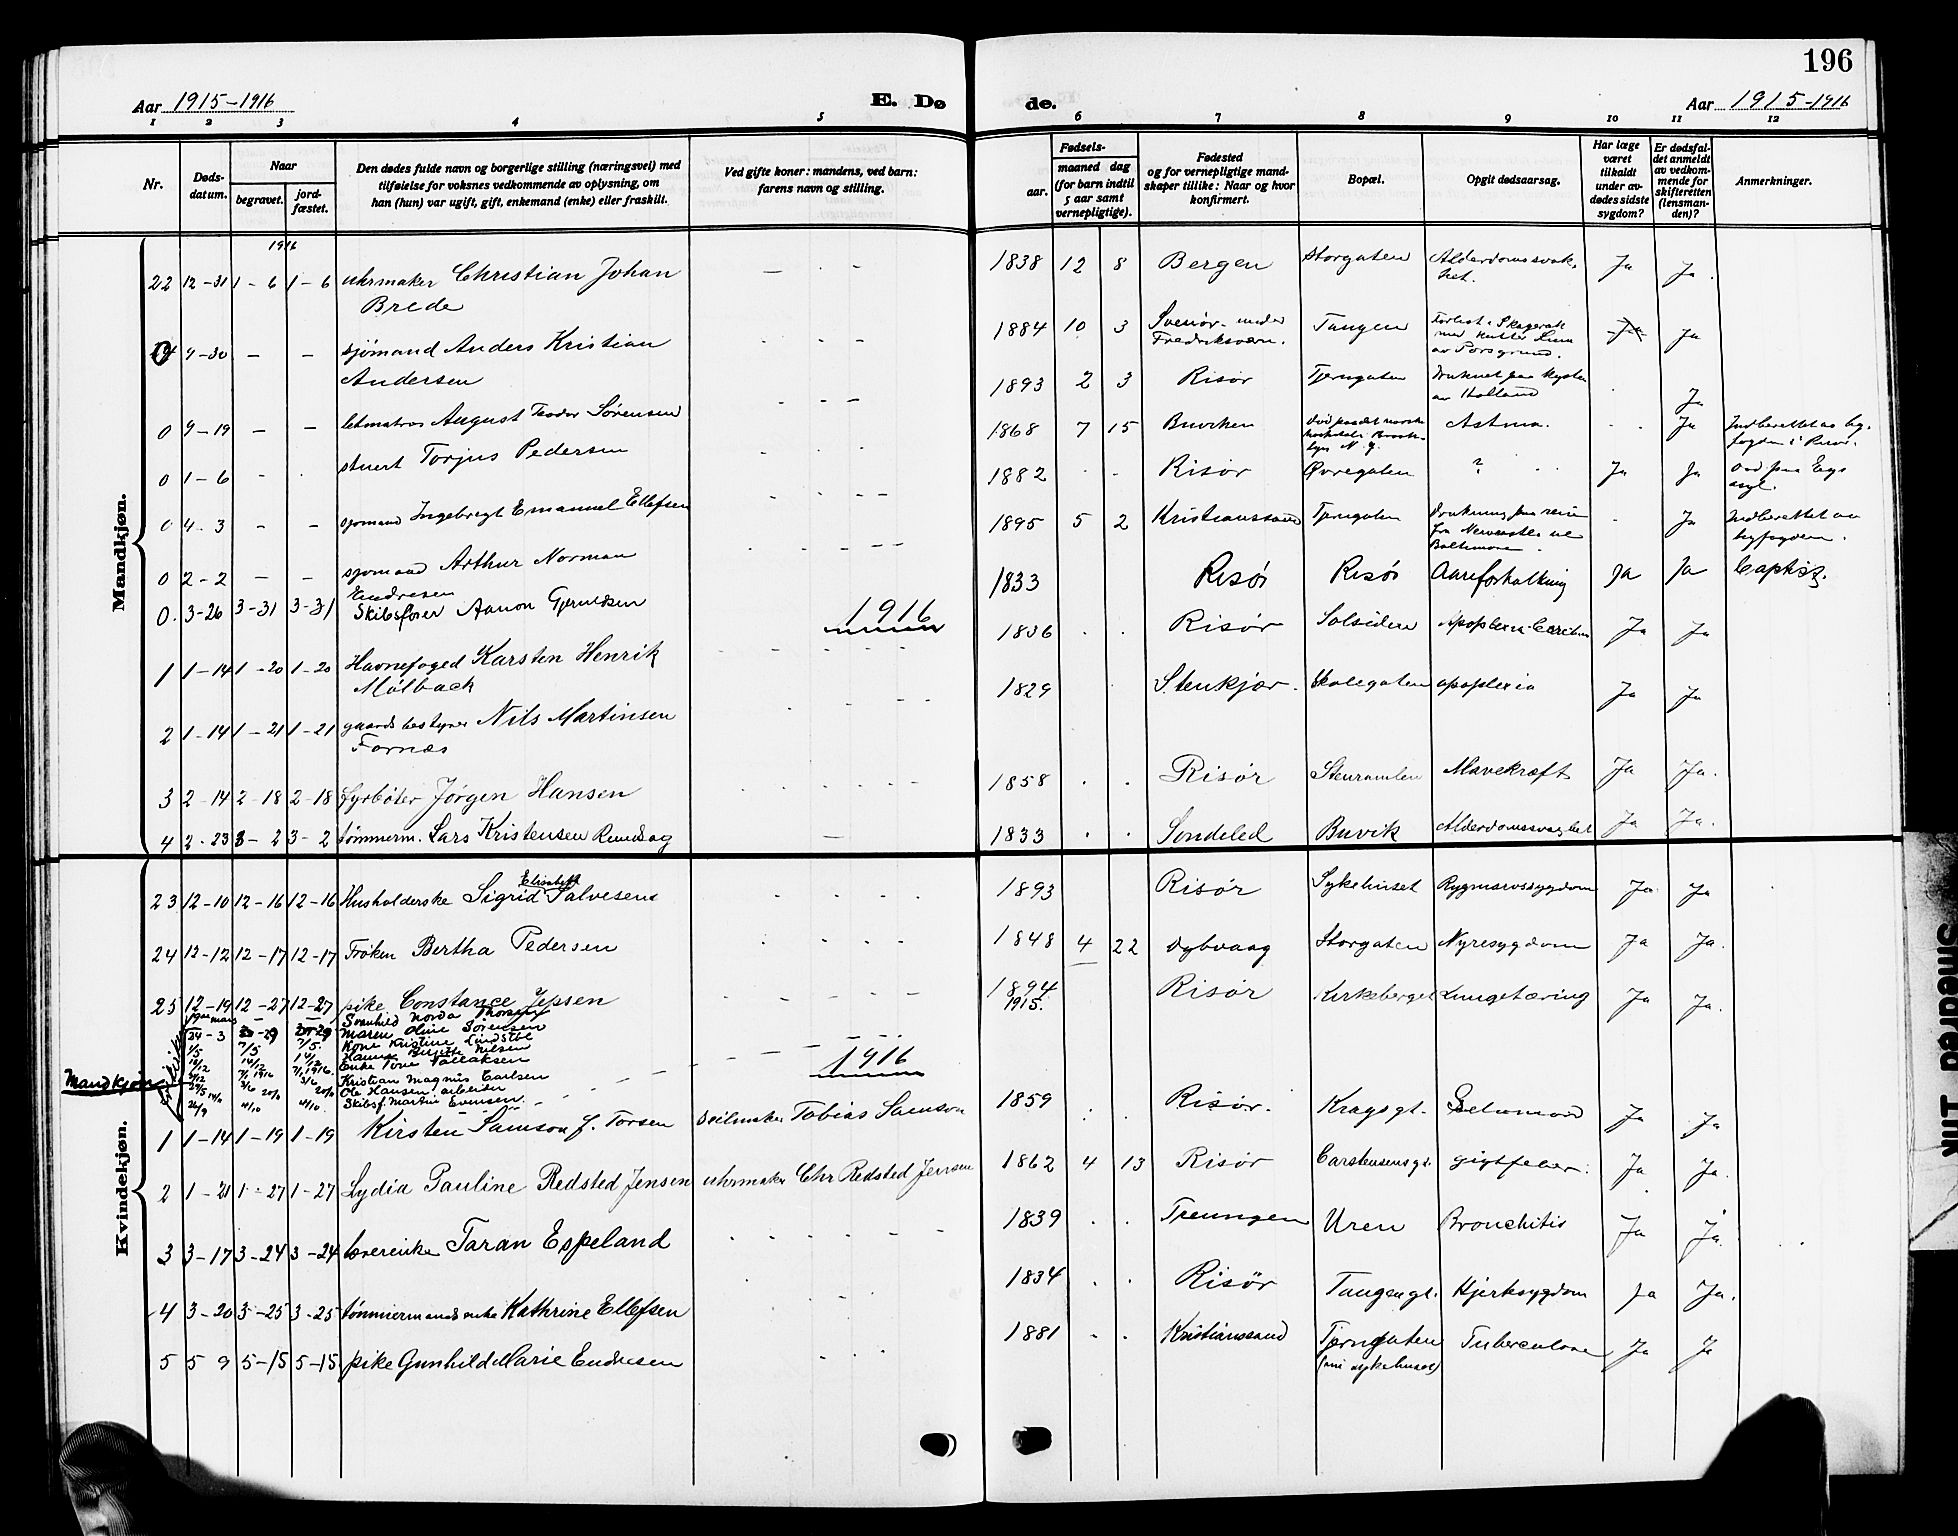 196
Aar 1915-1916
E. Dø
de.
Aar 1915-1916
1 2 3 4 5 6 7 8 9 10 11 12
Nr.
Døds-
datum.
Naar
begravet.
jord-
fæstet.
Den dødes fulde navn og borgerlige stilling (næringsvei) med
tilføielse for voksnes vedkommende av oplysning, om
han (hun) var ugift, gift, enkemand (enke) eller fraskilt.
Ved gifte koner: mandens, ved barn:
farens navn og stilling.
Fødsels-
aar.
maaned dag
(for barn indtil
5 aar samt
vernepligtige).
Fødested
og for vernepligtige mand-
skaper tillike: Naar og hvor
konfirmert.
Bopæl.
Opgit dødsaarsag.
Har læge
været
tilkaldt
under av-
dødes sidste
sygdom?
Er dødsfal-
det anmeldt
av vedkom-
mende for
skifteretten
(lensman-
den)?
Anmerkninger.
Mandkjøn.
1916
22 12-31 1-6 1-6 uhrmaker Christian Johan
Brede
1838 12 8 Bergen Storgaten Alderdomssvak.
het. Ja Ja.
0 9-30 - - sjømand Anders Kristian
Andersen
1884 10 3 Svenør under
Fredriksværn. Tangen Forlist i Skagerak
med Kutter Luna
av Porsgrund. Ja
0 9-19 - - letmatros August Teodor Sørensen
1893 2 3 Risør Tjerngaten Druknet paa kysten
av Holland Ja
0 1-6 - stuert Torjus Pedersen
1868 7 15 Buviken Død paa det norske
hospital i Brook-
lyn N. Y. Astma. Ja Indberettet av by-
fogden i Risør.
0 4-3 - - sjømand Ingebregt Emanuel Ellefsen
1882 Risør Øvregaten ? Ja Ja Død paa Egs
asyl.
0 2-2 - - sjømand Arthur Norman
Endresen
1895 5 2 Kristianssand Tjerngaten Drukning paa reise
fra Newcastle til
Baltimore. Ja Indberettet av
byfogden.
0. 3-26 3-31 3-31 Skibsfører Aanon Gjeruldsen
1833 Risør Risør Aareforkalkning Ja Ja baptist.
1916
1 1-14 1-20 1-20 Havnefoged Karsten Henrik
Mølback
1836 Risør Solsiden Apoplexia Cerebri Ja Ja
2 1-14 1-21 1-21 gaardsbestyrer Nils Martinsen
Fornæs
1829 Stenkjær. Skolegaten apoplexia Ja Ja
3 2-14 2-18 2-18 fyrbøter Jørgen Hansen
1858 Risør Stenramlen Mavekræft Ja Ja.
4 2-23 3-2 3-2 tømmerm. Lars Kristensen
1833 Søndeled Buvik Alderdomssvaghet Ja Ja.
Kvindekjøn.
23 12-10 12-16 12-16 Husholderske Sigrid Elisabeth Salvesen
1893 Risør Sykehuset Rygmarvssygdom Ja Ja
24 12-12 12-17 12-17 Frøken Bertha Pedersen
1848 4 22 Dybvaag Storgaten Nyresygdom Ja Ja.
25 12-19 12-27 12-27 pike Constance Jepsen
1894 Risør Kirkeberget Lungetæring Ja Ja.
1915.
Svanhild Norda Thorsen
24-3 Maren Oline Sørensen
1/5 7/5 7/5. Kone Kristine Lindstøl
14/12 14/12 Hanna Birgitte Nilsen
7/1 1916 7/1 1916. Enke Tone Tallaksen
Mandkjøn
3/6 3/6 Kristian Magnus Carlsen
20/9 20/9 Ole Hansen arbeider
26/9 4/10 4/10. Skibsf. Martin Evensen.
1916
1 1-14 1-19 1-19 Kirsten Samson f. Torsen seilmaker Tobias Samson
1859 Risør. Kragsgt. Ja Ja
2 1-21 1-27 1-27 Lydia Pauline Redsted Jensen uhrmaker Chr Redsted Jensen
1862 4 13 Risør Carstensensgt. gigtfeber. Ja Ja.
3 3-17 3-24 3-24 Taran Espeland
1839 Treungen Uren Bronchitis Ja Ja.
4 3-20 3-25 3-25 tømmermands enke Kathrine Ellefsen
1834 Risør Tangengt. Hjertesygdom Ja Ja.
5 5 9 5-15 5-15 pike Gunhild Marie Endresen
1881 Kristianssand Tjerngaten
(paa sykehuset) Tuberculose Ja Ja